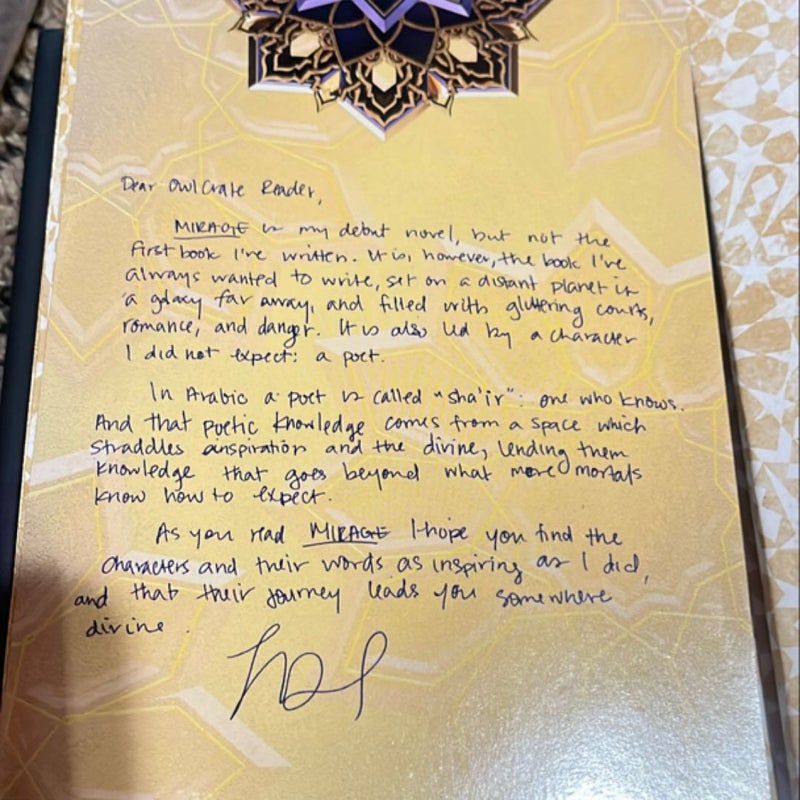 Dear OwlCrate Reader,
MIRAGE is my debut novel, but not the
first book I've written. It is, however, the book I've
always wanted to write, set on a distant planet in
a galaxy far away, and filled with glittering courts,
romance, and danger. It is also led by a character
I did not expect: a poet.
In Arabic a poet is called "sha'ir": one who knows.
And that poetic knowledge comes from a space which
straddles inspiration and the divine, lending them
knowledge that goes beyond what mere mortals
know how to expect.
As you read MIRAGE I hope you find the
characters and their words as inspiring as I did,
and that their journey leads you somewhere
divine.